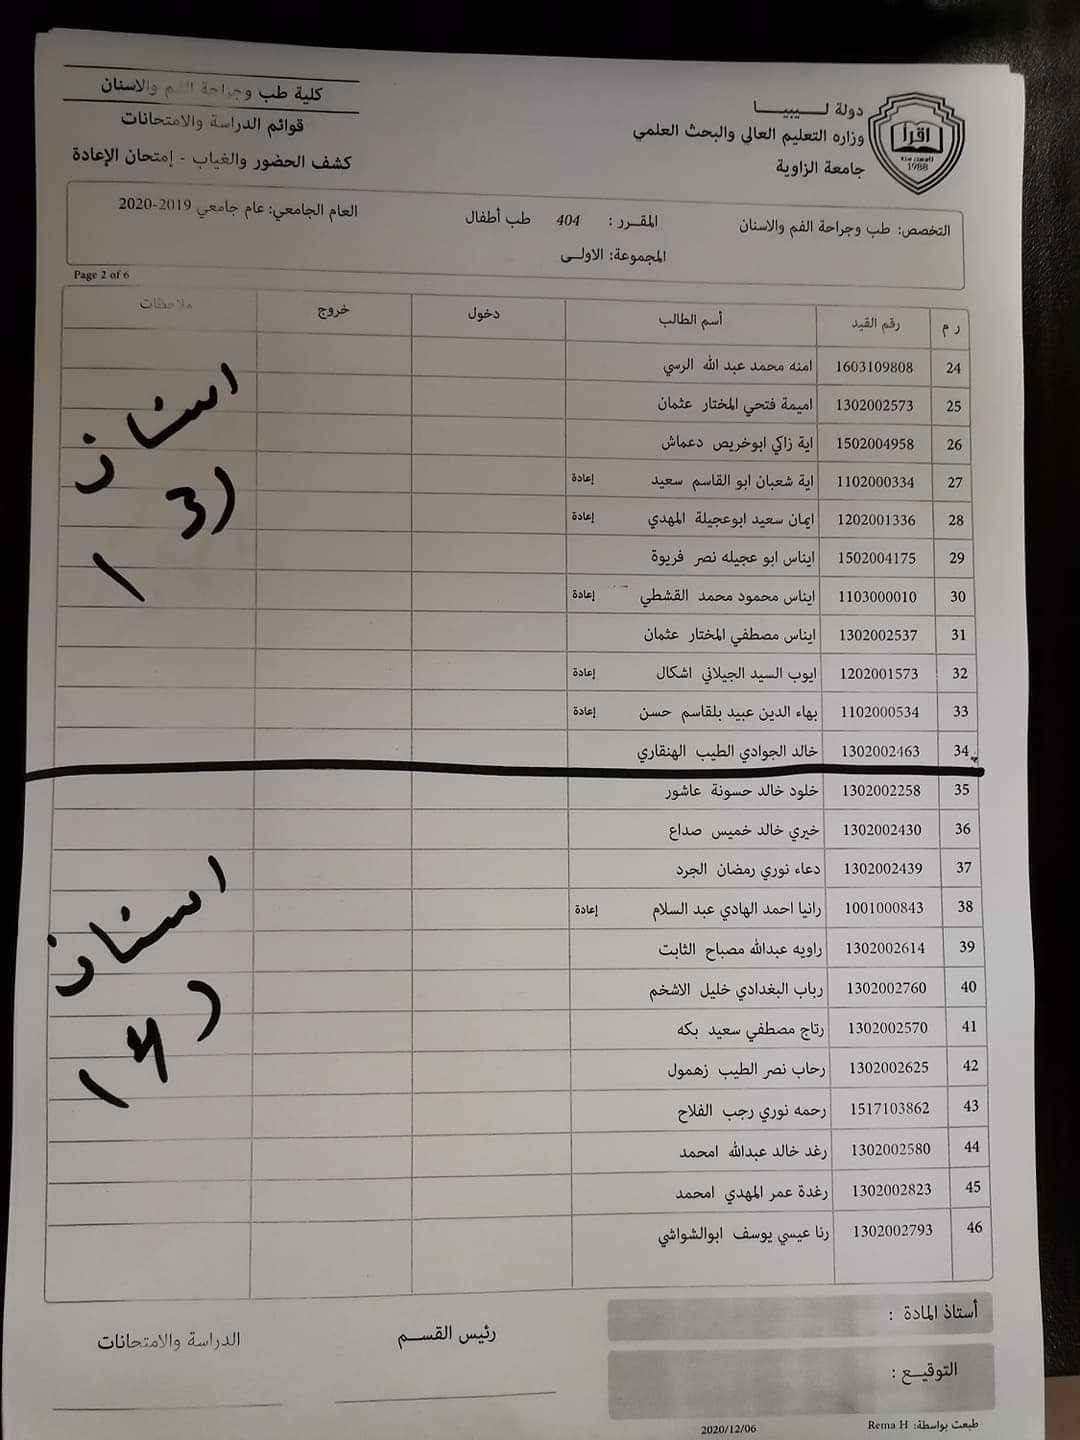 دولة لــــيبيــــا
وزارة التعليم العالي والبحث العلمي
جامعة الزاوية
اقرأ
تأسست سنة
1988
كلية طب وجراحة الفم والاسنان
قوائم الدراسة والامتحانات
كشف الحضور والغياب - إمتحان الإعادة
التخصص: طب وجراحة الفم والاسنان المقــرر : 404 طب أطفال العام الجامعي: عام جامعي 2019-2020
المجموعة: الاولــى
Page 2 of 6
ر م رقم القيد أسم الطالب دخول خروج ملاحظات
24 1603109808 امنه محمد عبد الله الرسي
25 1302002573 اميمة فتحي المختار عثمان
26 1502004958 اية زاكي ابوخريص دعماش
27 1102000334 اية شعبان ابو القاسم سعيد إعادة
28 1202001336 ايمان سعيد ابوعجيلة المهدي إعادة
29 1502004175 ايناس ابو عجيله نصر فريوة
30 1103000010 ايناس محمود محمد القشطي إعادة
31 1302002537 ايناس مصطفي المختار عثمان
32 1202001573 ايوب السيد الجيلاني اشكال إعادة
33 1102000534 بهاء الدين عبيد بلقاسم حسن إعادة
34 1302002463 خالد الجوادي الطيب الهنقاري
اسنان
(3)
35 1302002258 خلود خالد حسونة عاشور
36 1302002430 خيري خالد خميس صداع
37 1302002439 دعاء نوري رمضان الجرد
38 1001000843 رانيا احمد الهادي عبد السلام إعادة
39 1302002614 راويه عبدالله مصباح الثابت
40 1302002760 رباب البغدادي خليل الاشخم
41 1302002570 رتاج مصطفي سعيد بكه
42 1302002625 رحاب نصر الطيب زهمول
43 1517103862 رحمه نوري رجب الفلاح
44 1302002580 رغد خالد عبدالله امحمد
45 1302002823 رغدة عمر المهدي امحمد
46 1302002793 رنا عيسي يوسف ابوالشواشي
اسنان
(4)
أستاذ المادة :
التوقيـع :
رئيس القســم
الدراسة والامتحانات
طبعت بواسطة: Rema H
2020/12/06